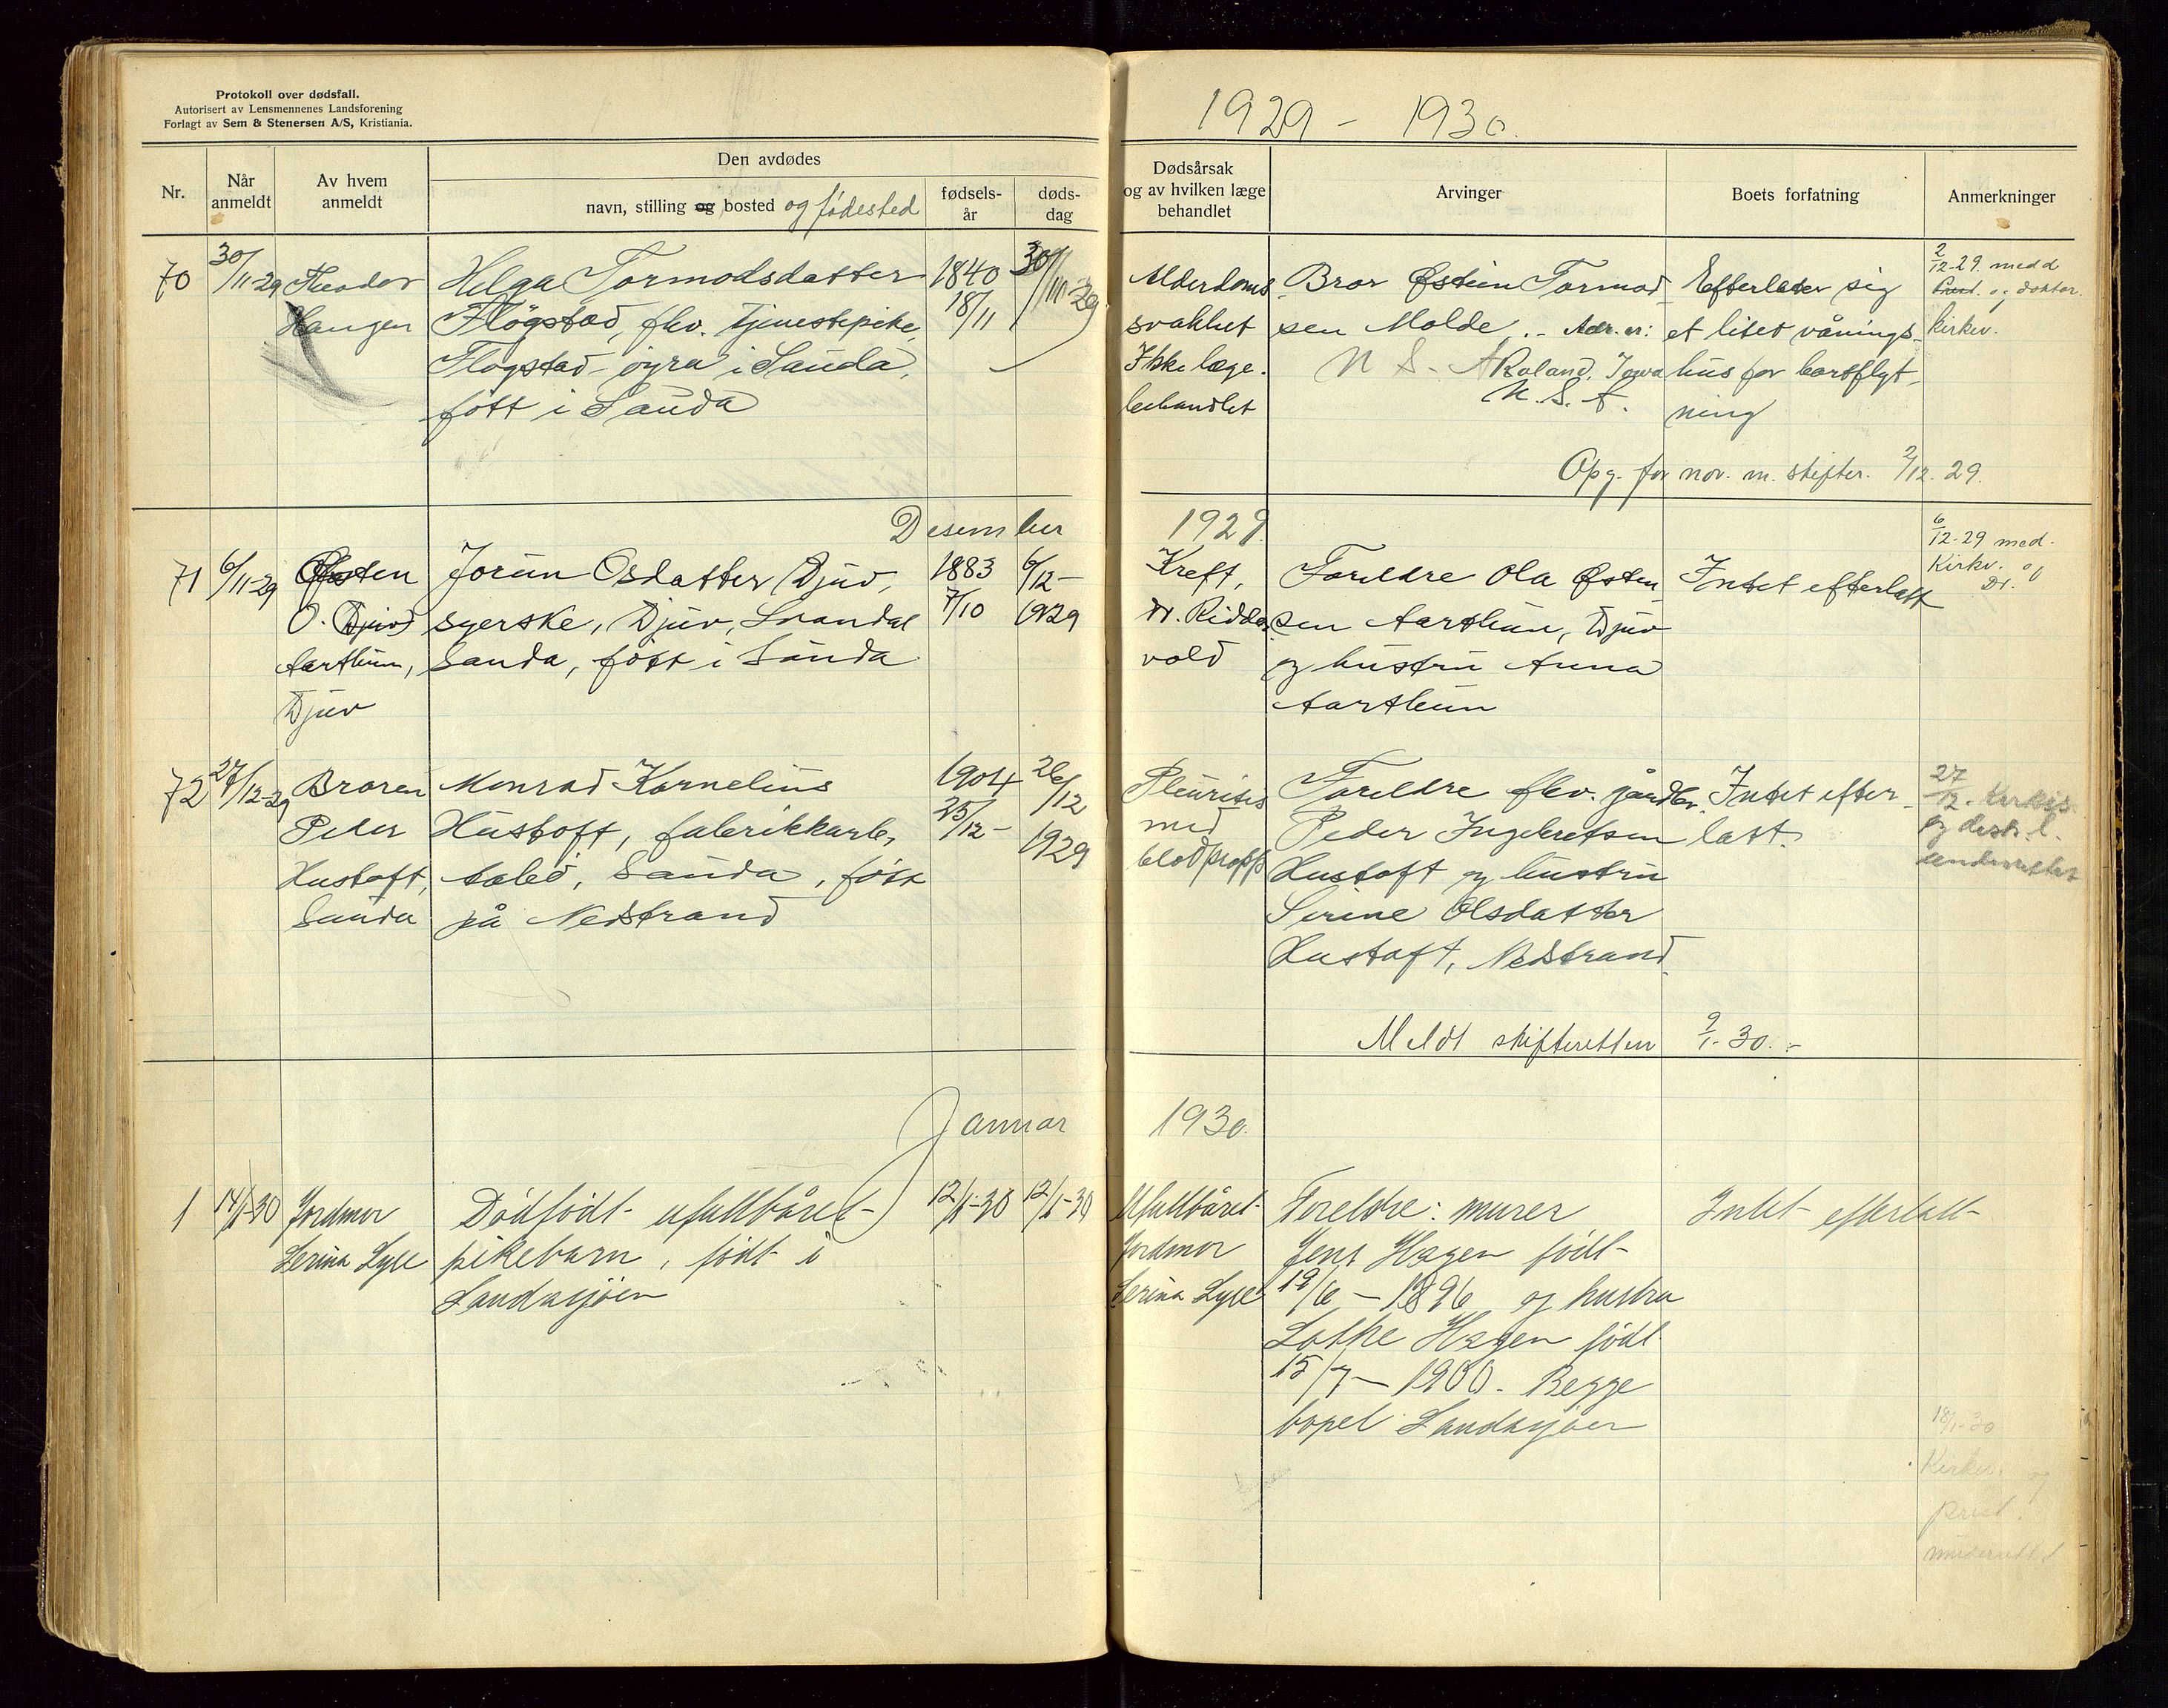 Protokoll over dødsfall.
Autorisert av Lensmennenes Landsforening
Forlagt av Sem & Stenersen A/S, Kristiania.
1929 – 1930.
Nr.
Når anmeldt
Av hvem anmeldt
Den avdødes
navn, stilling og bosted og fødested
fødsels-
år
døds-
dag
Dødsårsak
og av hvilken læge
behandlet
Arvinger
Boets forfatning
Anmerkninger
70
30/11-29
Theodor
Haugen
Helga Tormodsdatter
Flögstad, fhv. tjenestepike,
Flogstad-öyra i Sauda,
fött i Sauda
1840
18/11
30/11-29
Alderdoms
svakhet
Ikke læge-
behandlet
Bror Östein Tormod
sen Molde. – Adr. er:
Roland, Iowa
U. S. A.
Efterlater sig
et litet vånings-
hus for bortflyt-
ning
2/12-29. medd
og doktor.
kirkev.
Opg. for nov. m. skifter. 2/12. 29.
Desember 1929.
71
6/11-29
Østen
O. Djuv
Aarthun,
Djuv
Jorun Osdatter Djuv,
syerske, Djuv, Svandal
Sauda, fött i Sauda
1883
7/10
6/12-
1929
Kreft,
Dr. Ridder
vold
Foreldre Ola Østen
sen Aarthun, Djuv
og hustru Anna
Aarthun
Intet efterlatt
6/12-29 med.
Kirkv. og
Dr.
72
27/12-29
Broren
Peder
Hustoft,
Sauda
Monrad Kornelius
Hustoft, fabrikkarb.,
Aabö, Sauda, fött
på Nedstrand
1904
25/12-
26/12
1929
Pleurites
med
blodpropp
Foreldre fhv. gårdbr.
Peder Ingebretsen
Hustoft og hustru
Serine Olsdatter
Hustoft, Nedstrand
Intet efter-
latt.
27/12. Kirkev.
og distr. l.
underrettet
Meldt skifteretten 9/1-30.-
Januar 1930.
1
14/1-30
Jordmor
Serina Lyse
Dödfödt ufullbåret
pikebarn, födt i
Saudasjöen
12/1-30
12/1-30
Ufullbåret
Jordmor
Serina Lyse
Foreldre: murer
Jens Hagen födt
19/6 – 1896 og hustru
Lothe Hagen födt
15/7 – 1900. Begge
bopel Saudasjöen
Intet efterlatt
18/1-30
Kirkev. og
prest.
underrettet